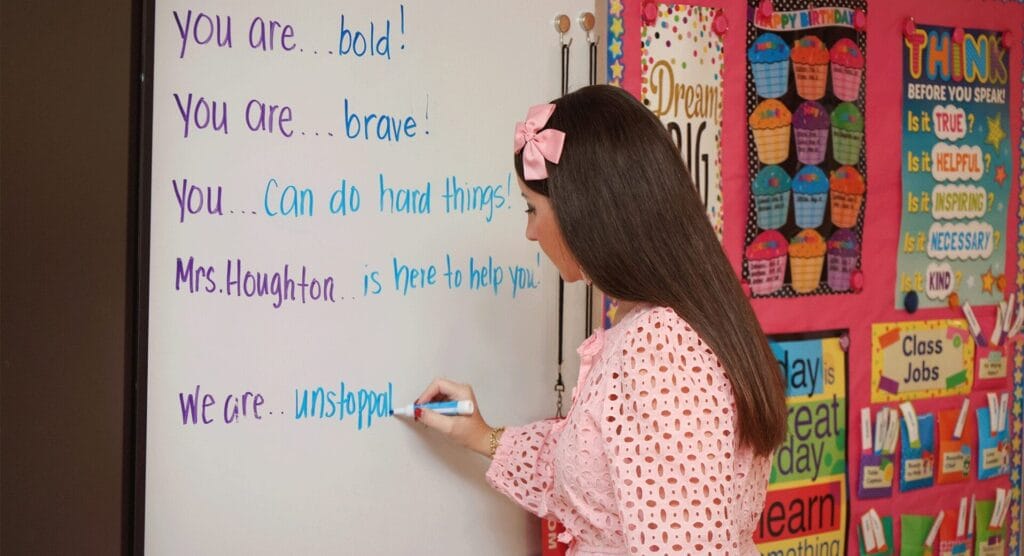 you are... bold!
you are... brave!
you... can do hard things!
Mrs. Houghton.. is here to help you!
we are.. unstoppal
Dream
BIG
HAPPY BIRTHDAY
THINK
BEFORE YOU SPEAK!
Is it TRUE?
Is it HELPFUL?
Is it INSPIRING?
Is it NECESSARY?
Is it KIND?
Class
Jobs
day is
great
day
learn
something